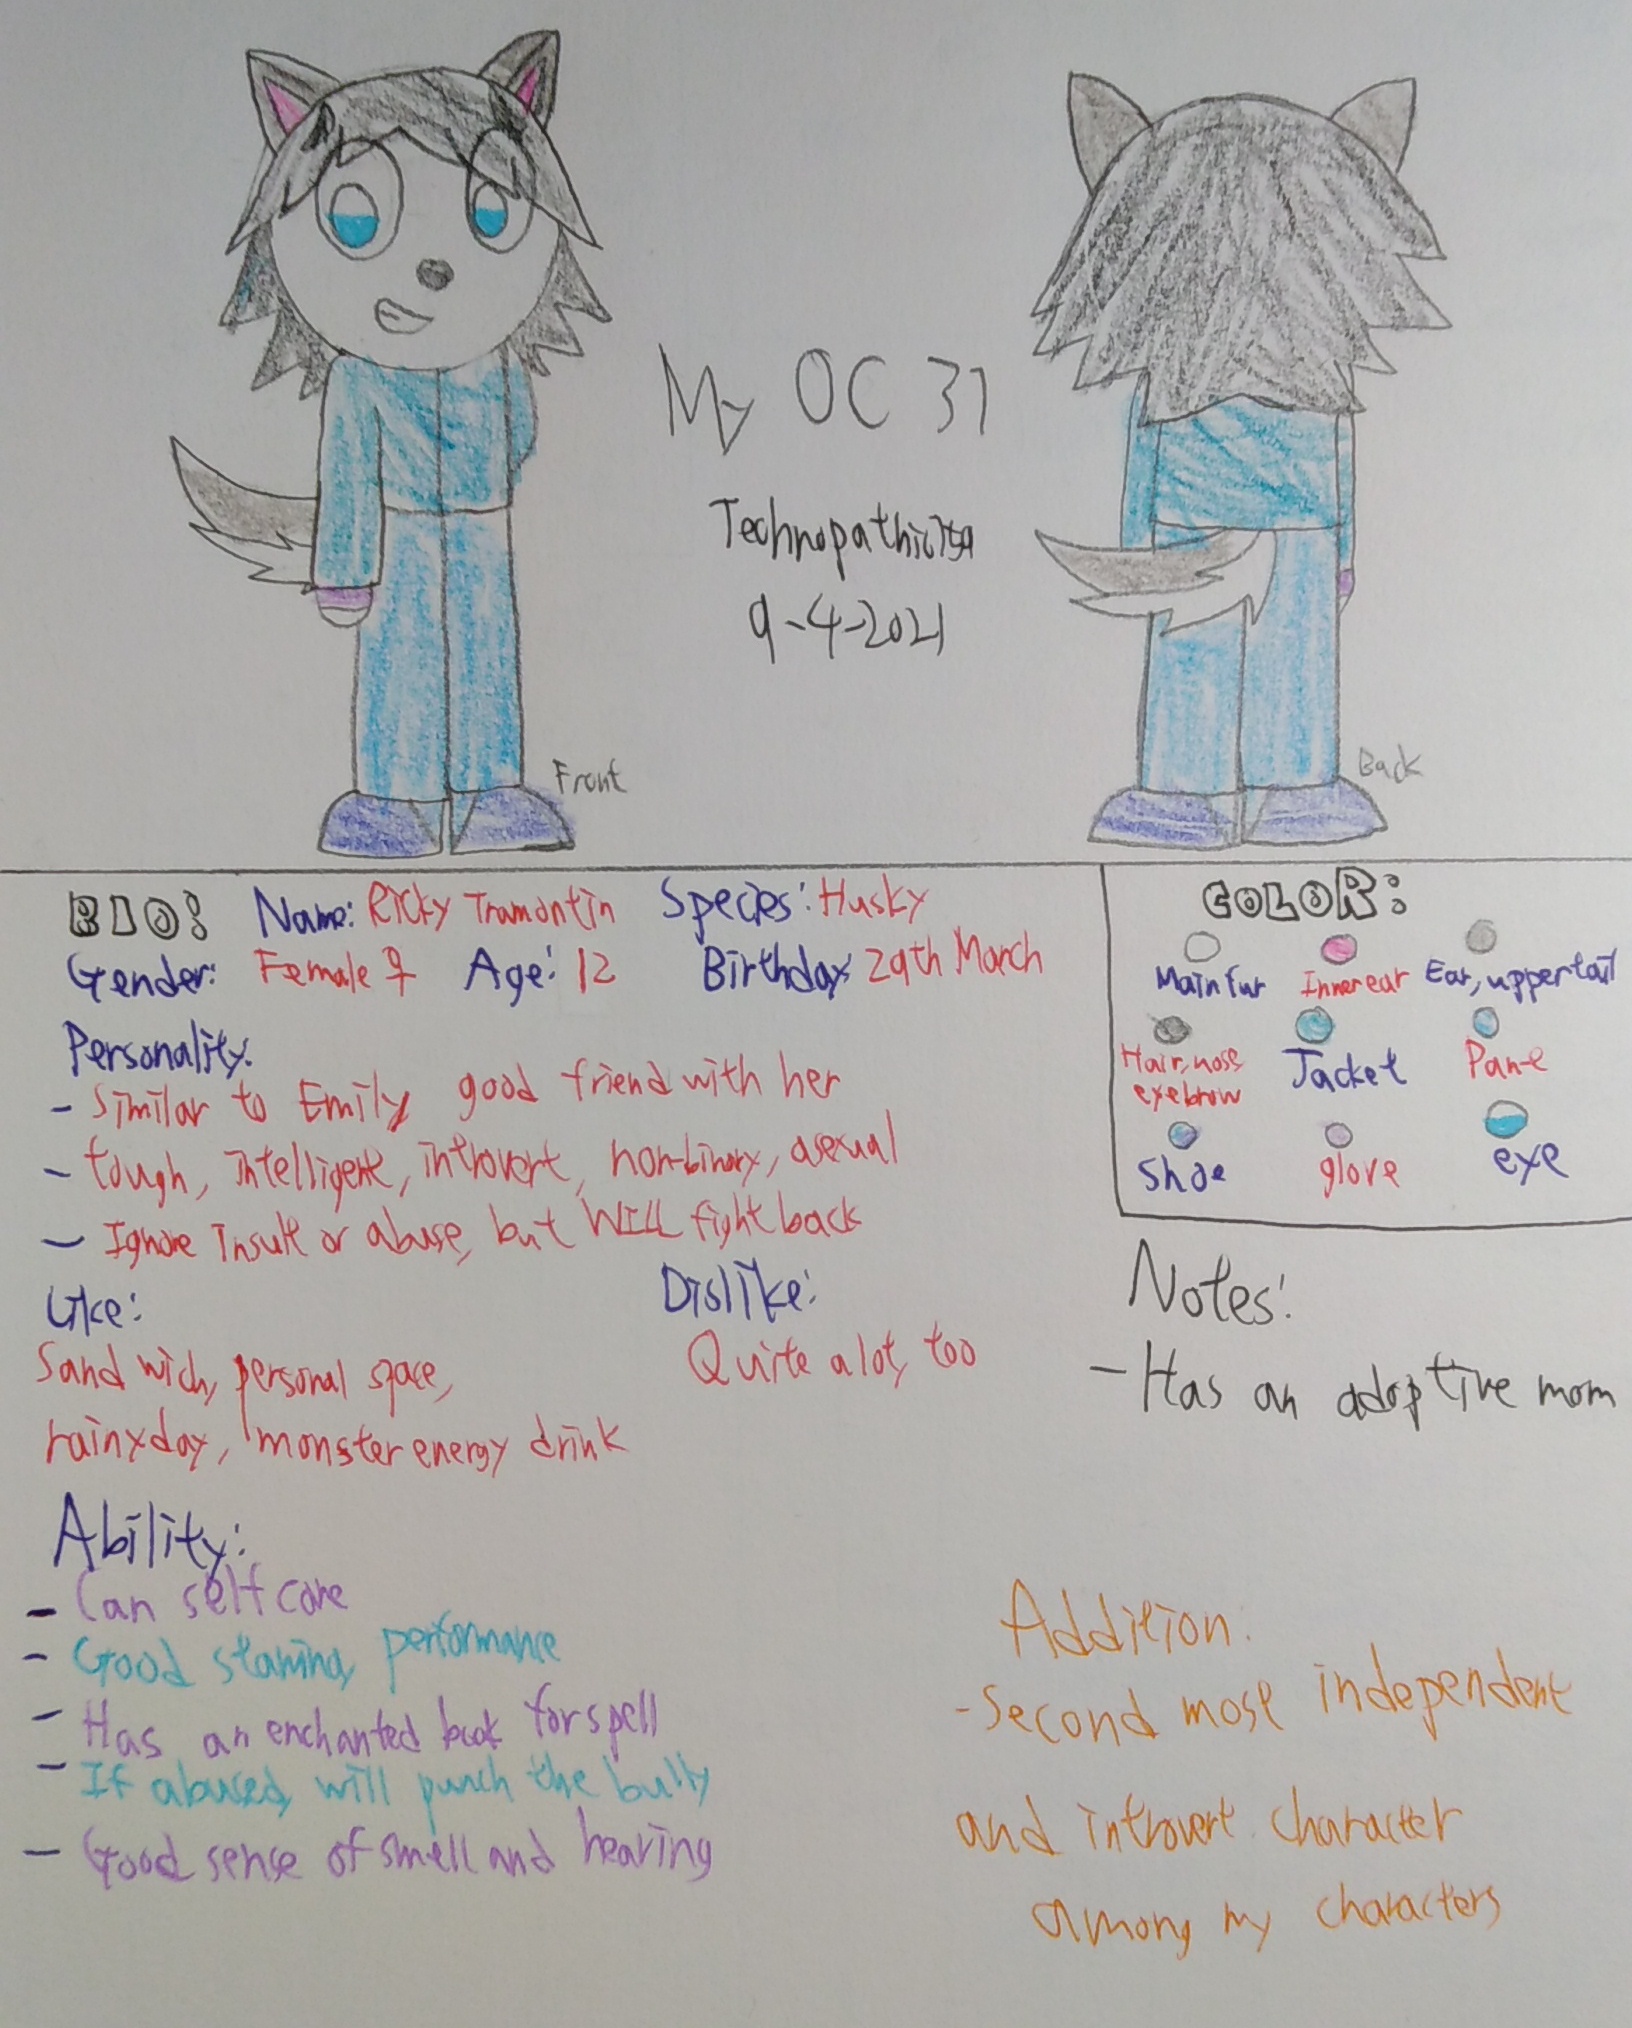 My OC 31
9-4-2021
Front
Back
BIO!
Name: Ricky Tramontin
Species: Husky
Gender: Female ♀
Age: 12
Birthday 29th March
Personality:
- Similar to Emily good friend with her
- tough, intelligent, introvert, non-binary, asexual
- Ignore insult or abuse, but WILL fight back
Like:
Sand wich, personal space,
rainyday, monster energy drink
Dislike:
Quite a lot, too
Ability:
- Can self care
- Good stamina, performance
- Has an enchanted book for spell
- If abused, will punch the bully
- Good sense of smell and hearing
COLOR:
Main fur
Inner ear
Ear, upper tail
Hair, nose
eyebrow
Jacket
Pant
Shoe
glove
eye
Notes:
- Has an adoptive mom
Addition:
- Second most independent
and introvert character
among my characters